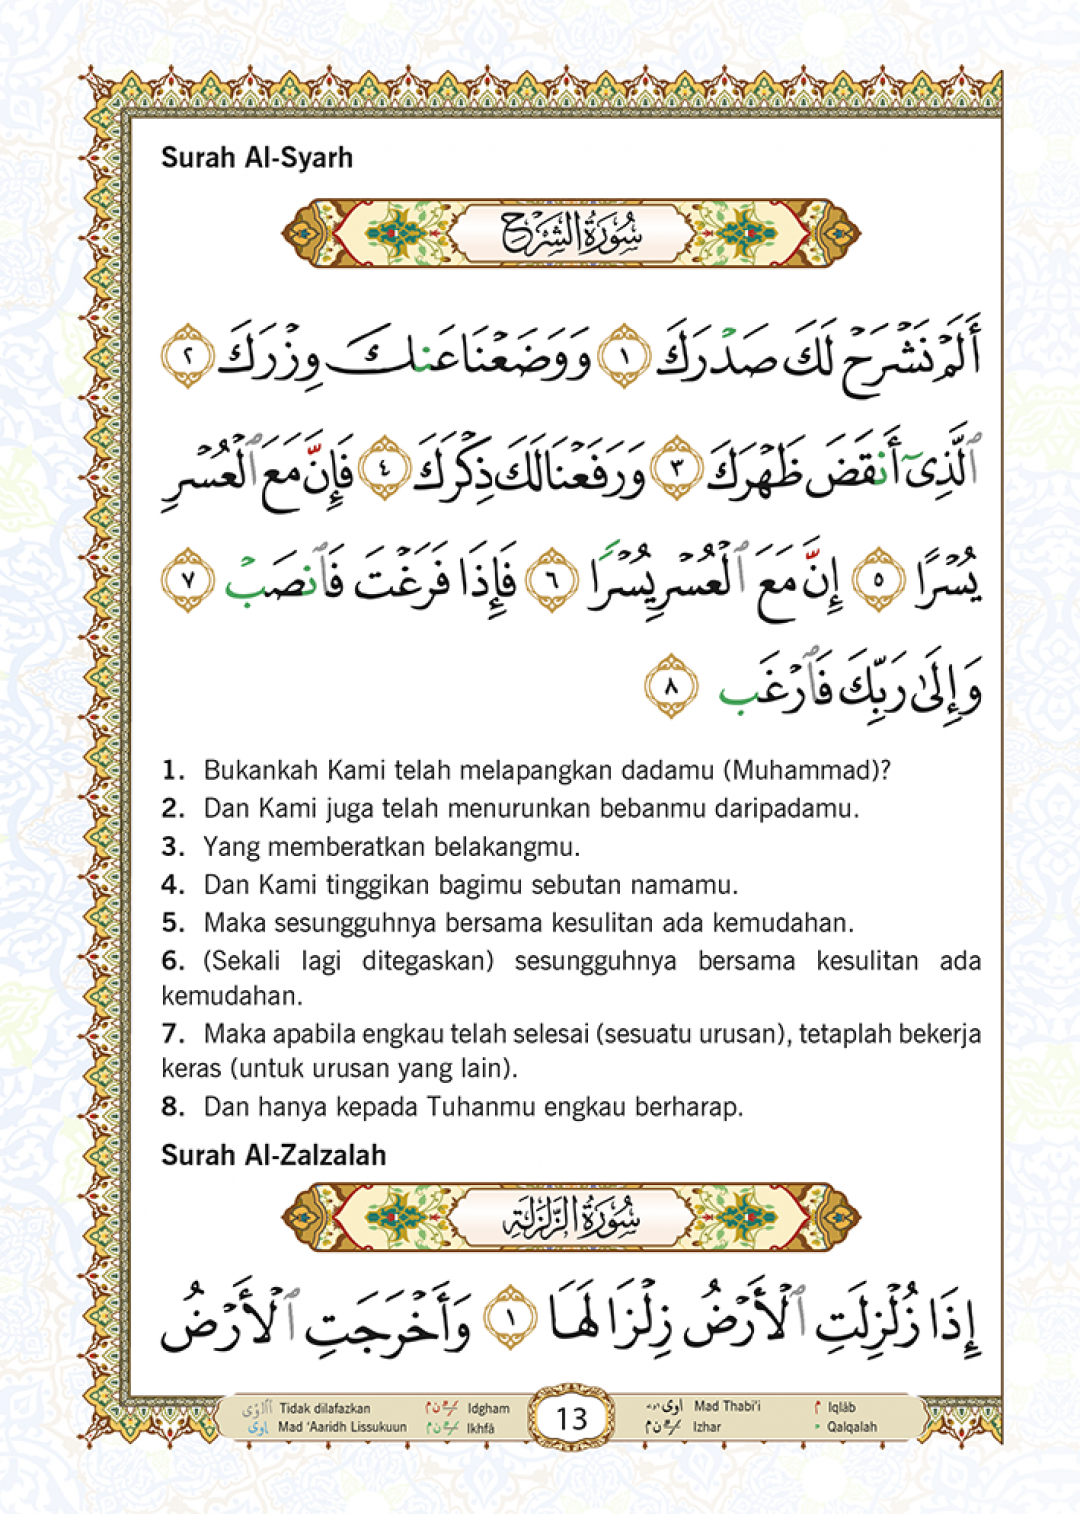 Surah Al-Syarh
سُورَةُ الشَّرۡحِ
أَلَمۡ نَشۡرَحۡ لَكَ صَدۡرَكَ ١ وَوَضَعۡنَا عَنكَ وِزۡرَكَ ٢
ٱلَّذِيٓ أَنقَضَ ظَهۡرَكَ ٣ وَرَفَعۡنَا لَكَ ذِكۡرَكَ ٤ فَإِنَّ مَعَ ٱلۡعُسۡرِ
يُسۡرًا ٥ إِنَّ مَعَ ٱلۡعُسۡرِ يُسۡرٗا ٦ فَإِذَا فَرَغۡتَ فَٱنصَبۡ ٧
وَإِلَىٰ رَبِّكَ فَٱرۡغَب ٨
1. Bukankah Kami telah melapangkan dadamu (Muhammad)?
2. Dan Kami juga telah menurunkan bebanmu daripadamu.
3. Yang memberatkan belakangmu.
4. Dan Kami tinggikan bagimu sebutan namamu.
5. Maka sesungguhnya bersama kesulitan ada kemudahan.
6. (Sekali lagi ditegaskan) sesungguhnya bersama kesulitan ada
kemudahan.
7. Maka apabila engkau telah selesai (sesuatu urusan), tetaplah bekerja
keras (untuk urusan yang lain).
8. Dan hanya kepada Tuhanmu engkau berharap.
Surah Al-Zalzalah
سُورَةُ الزَّلۡزَلَةِ
إِذَا زُلۡزِلَتِ ٱلۡأَرۡضُ زِلۡزَالَهَا ١ وَأَخۡرَجَتِ ٱلۡأَرۡضُ
Tidak dilafazkan م ن Idgham 13 اوى Mad Thabi'i م Iqlāb
اوى Mad 'Aaridh Lissukuun م ن Ikhfā م ن Izhar Qalqalah